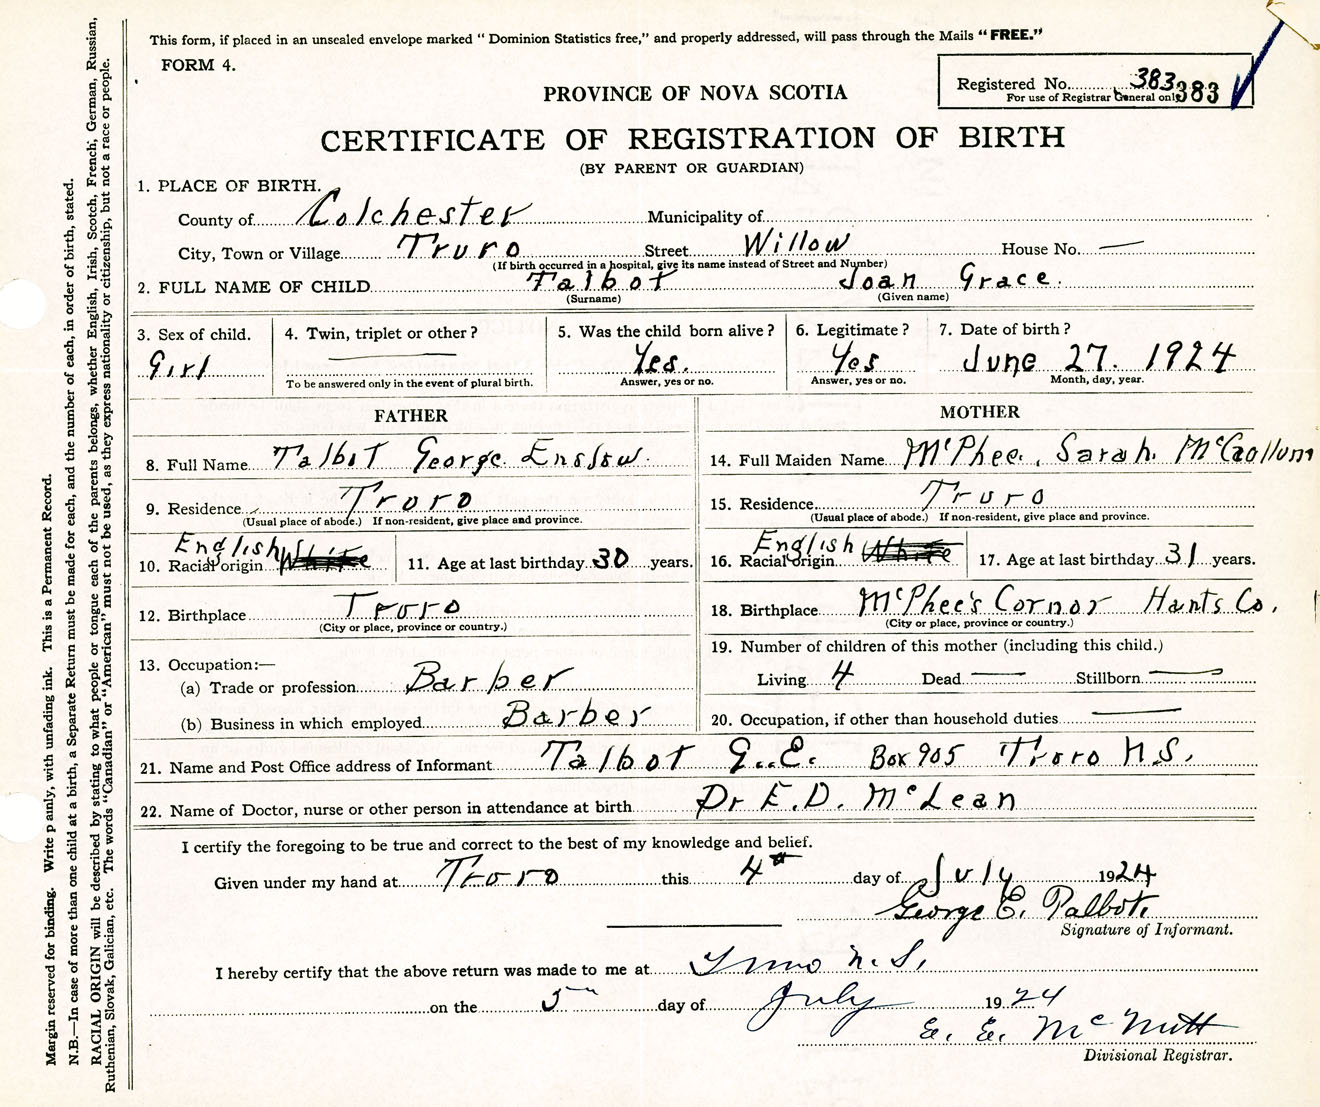 This form, if placed in an unsealed envelope marked “ Dominion Statistics free,” and properly addressed, will pass through the Mails “FREE.”
FORM 4.
Registered No. 383 383
For use of Registrar General only
PROVINCE OF NOVA SCOTIA
CERTIFICATE OF REGISTRATION OF BIRTH
(BY PARENT OR GUARDIAN)
1. PLACE OF BIRTH.
County of Colchester Municipality of
City, Town or Village Truro Street Willow House No. —
(If birth occurred in a hospital, give its name instead of Street and Number)
2. FULL NAME OF CHILD Talbot Joan Grace.
(Surname) (Given name)
3. Sex of child. 4. Twin, triplet or other? 5. Was the child born alive? 6. Legitimate? 7. Date of birth?
Girl — Yes. Yes June 27. 1924
To be answered only in the event of plural birth. Answer, yes or no. Answer, yes or no. Month, day, year.
FATHER
8. Full Name Talbot George Enslow.
9. Residence Truro
(Usual place of abode.) If non-resident, give place and province.
English
10. Racial origin White 11. Age at last birthday 30 years.
12. Birthplace Truro
(City or place, province or country.)
13. Occupation:—
(a) Trade or profession Barber
(b) Business in which employed Barber
MOTHER
14. Full Maiden Name McPhee, Sarah. McCollum
15. Residence Truro
(Usual place of abode.) If non-resident, give place and province.
English
16. Racial origin White 17. Age at last birthday 31 years.
18. Birthplace McPhee's Cornor Hants Co.
(City or place, province or country.)
19. Number of children of this mother (including this child.)
Living 4 Dead — Stillborn —
20. Occupation, if other than household duties —
21. Name and Post Office address of Informant Talbot G.E. Box 905 Truro N.S.
22. Name of Doctor, nurse or other person in attendance at birth Dr E.D. McLean
I certify the foregoing to be true and correct to the best of my knowledge and belief.
Given under my hand at Truro this 4th day of July 1924
George E. Talbot.
Signature of Informant.
I hereby certify that the above return was made to me at Truro N.S.
on the 5th day of July 1924
E. E. McNutt
Divisional Registrar.
Margin reserved for binding. Write p anly, with unfading ink. This is a Permanent Record.
N.B.—In case of more than one child at a birth, a Separate Return must be made for each, and the number of each, in order of birth, stated.
RACIAL ORIGIN will be described by stating to what people or tongue each of the parents belongs, whether English, Irish, Scotch, French, German, Russian,
Ruthenian, Slovak, Galician, etc. The words “Canadian” or “American” must not be used, as they express nationality or citizenship, but not a race or people.